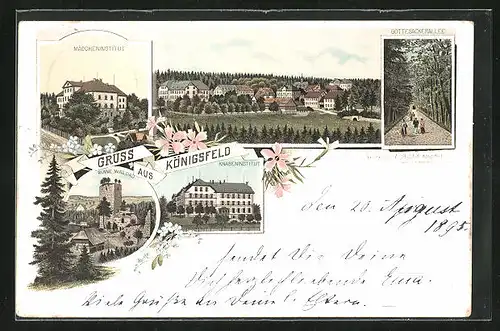 MÄDCHENINSTITUT
GOTTESACKERALLEE
GRUSS AUS KÖNIGSFELD
RUINE WALDAU
KNABENINSTITUT
Den 20. August
1895.
sendet Dir Deine
Dich herzlich liebende Ema.
Viele Grüße an Deine l. Eltern.